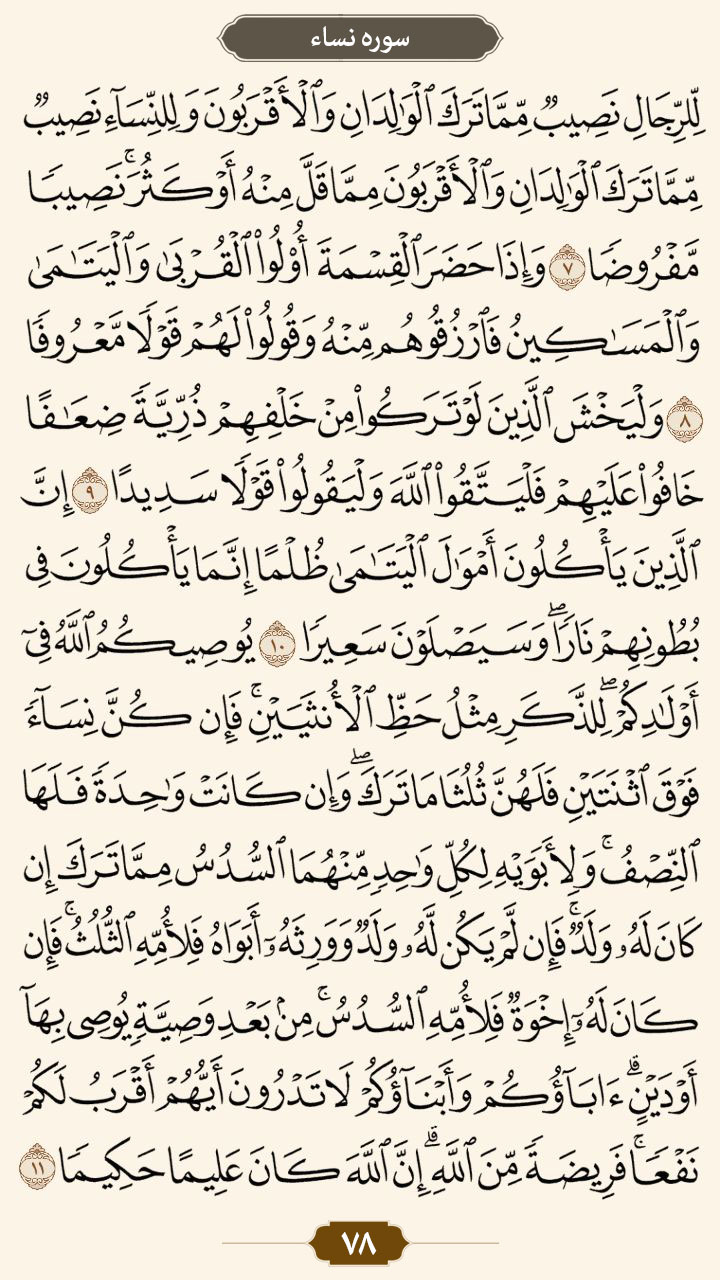 سوره نساء
لِّلرِّجَالِ نَصِيبٌ مِّمَّا تَرَكَ ٱلْوَٰلِدَانِ وَٱلْأَقْرَبُونَ وَلِلنِّسَآءِ نَصِيبٌ
مِّمَّا تَرَكَ ٱلْوَٰلِدَانِ وَٱلْأَقْرَبُونَ مِمَّا قَلَّ مِنْهُ أَوْ كَثُرَ ۚ نَصِيبًا
مَّفْرُوضًا ٧ وَإِذَا حَضَرَ ٱلْقِسْمَةَ أُو۟لُوا۟ ٱلْقُرْبَىٰ وَٱلْيَتَٰمَىٰ
وَٱلْمَسَٰكِينُ فَٱرْزُقُوهُم مِّنْهُ وَقُولُوا۟ لَهُمْ قَوْلًا مَّعْرُوفًا
٨ وَلْيَخْشَ ٱلَّذِينَ لَوْ تَرَكُوا۟ مِنْ خَلْفِهِمْ ذُرِّيَّةً ضِعَٰفًا
خَافُوا۟ عَلَيْهِمْ فَلْيَتَّقُوا۟ ٱللَّهَ وَلْيَقُولُوا۟ قَوْلًا سَدِيدًا ٩ إِنَّ
ٱلَّذِينَ يَأْكُلُونَ أَمْوَٰلَ ٱلْيَتَٰمَىٰ ظُلْمًا إِنَّمَا يَأْكُلُونَ فِى
بُطُونِهِمْ نَارًا ۖ وَسَيَصْلَوْنَ سَعِيرًا ١٠ يُوصِيكُمُ ٱللَّهُ فِىٓ
أَوْلَٰدِكُمْ ۖ لِلذَّكَرِ مِثْلُ حَظِّ ٱلْأُنثَيَيْنِ ۚ فَإِن كُنَّ نِسَآءً
فَوْقَ ٱثْنَتَيْنِ فَلَهُنَّ ثُلُثَا مَا تَرَكَ ۖ وَإِن كَانَتْ وَٰحِدَةً فَلَهَا
ٱلنِّصْفُ ۚ وَلِأَبَوَيْهِ لِكُلِّ وَٰحِدٍ مِّنْهُمَا ٱلسُّدُسُ مِمَّا تَرَكَ إِن
كَانَ لَهُۥ وَلَدٌ ۚ فَإِن لَّمْ يَكُن لَّهُۥ وَلَدٌ وَوَرِثَهُۥٓ أَبَوَاهُ فَلِأُمِّهِ ٱلثُّلُثُ ۚ فَإِن
كَانَ لَهُۥٓ إِخْوَةٌ فَلِأُمِّهِ ٱلسُّدُسُ ۚ مِنۢ بَعْدِ وَصِيَّةٍ يُوصِى بِهَآ
أَوْ دَيْنٍ ۗ ءَابَآؤُكُمْ وَأَبْنَآؤُكُمْ لَا تَدْرُونَ أَيُّهُمْ أَقْرَبُ لَكُمْ
نَفْعًا ۚ فَرِيضَةً مِّنَ ٱللَّهِ ۗ إِنَّ ٱللَّهَ كَانَ عَلِيمًا حَكِيمًا ١١
٧٨